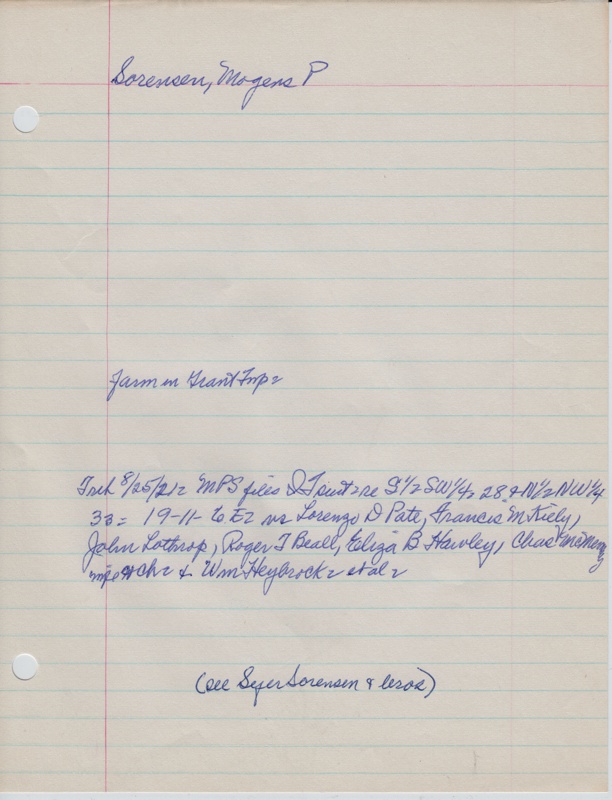 Sorensen, Mogens P
Farm in Grant Twp =
Trib 8/25/21 = MPS files Q T suit = re S 1/2 SW 1/4 = 28 & N 1/2 NW 1/4
33 = 19-11- vs Lorenzo D Pate, Francis M Kiely,
John Lothrop, Roger T Beall, Eliza B Hawley, Chas
ch = & Wm Heybrock = et al =
(see Sejer Sorensen & bros)